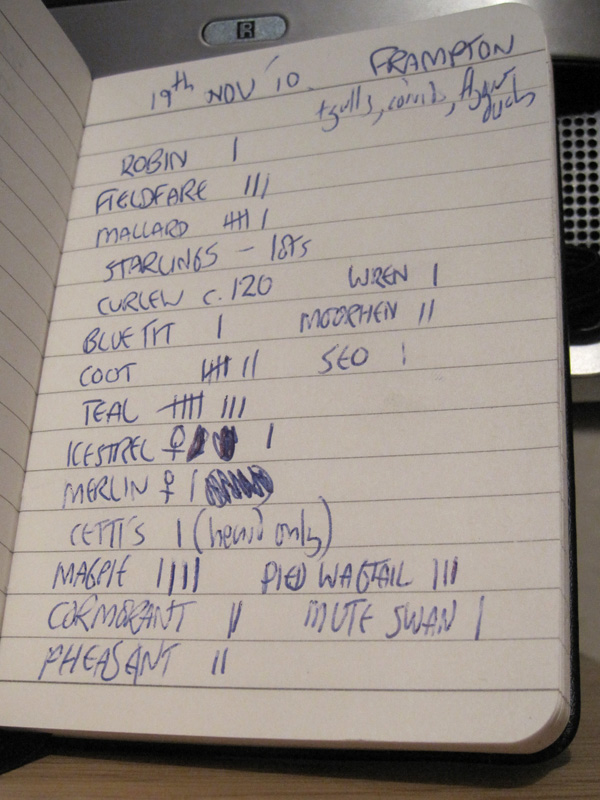 R
19th NOV '10. FRAMPTON
+gulls, corvids,
ducks
ROBIN |
FIELDFARE |||
MALLARD 卌 |
STARLINGS - 10Ts
CURLEW c. 120 WREN |
BLUE TIT | MOORHEN ||
COOT 卌 || SEO |
TEAL 卌 |||
KESTREL ♀ |
MERLIN ♀ |
CETTI'S | (heard only)
MAGPIE |||| PIED WAGTAIL |||
CORMORANT || MUTE SWAN |
PHEASANT ||